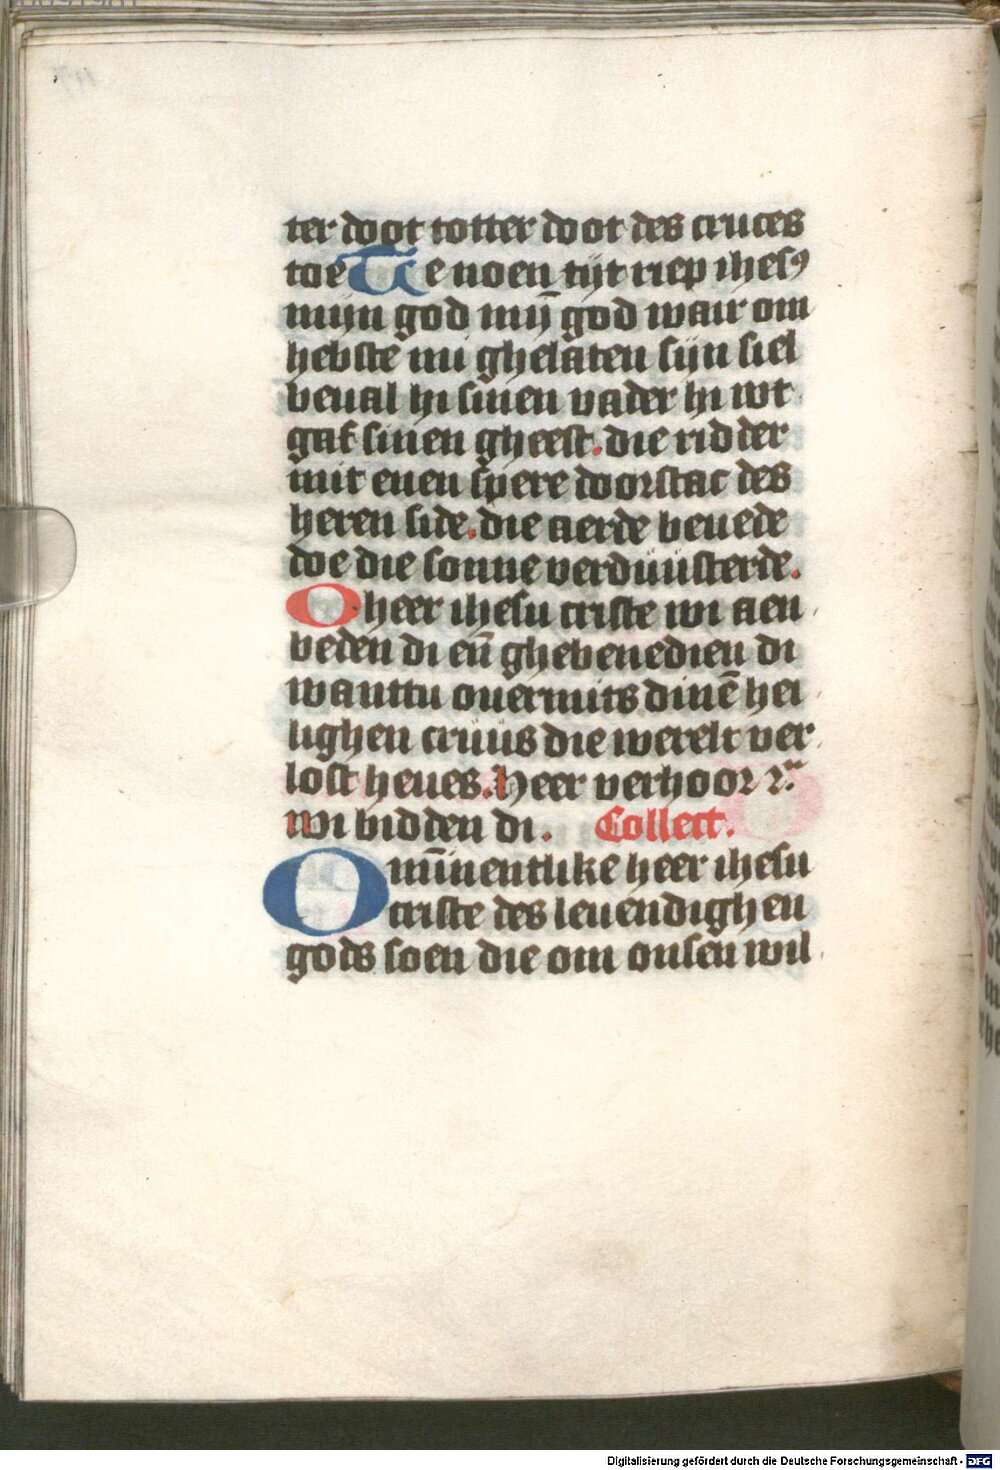 ter doot totter doot des cruces
toe Te noen tijt riep ihesꝰ
mijn god mȳ god wair om
hebste mi ghelaten sijn siel
beual hi sinen vader hi wt
gaf sinen gheest. die ridder
mit enen spere doorstac des
heren side. die aerde beuede
doe die sonne verduusterde.
O heer ihesu criste wi aen
beden di en̄ ghebenedien di
wanttu ouermits dinē hei
lighen cruus die werelt ver
lost heues. Heer verhoor ꝛc̄
wi bidden di. Collect.
Omīnentlike heer ihesu
criste des leuendighen
gods soen die om onsen wil
Digitalisierung gefördert durch die Deutsche Forschungsgemeinschaft - DFG